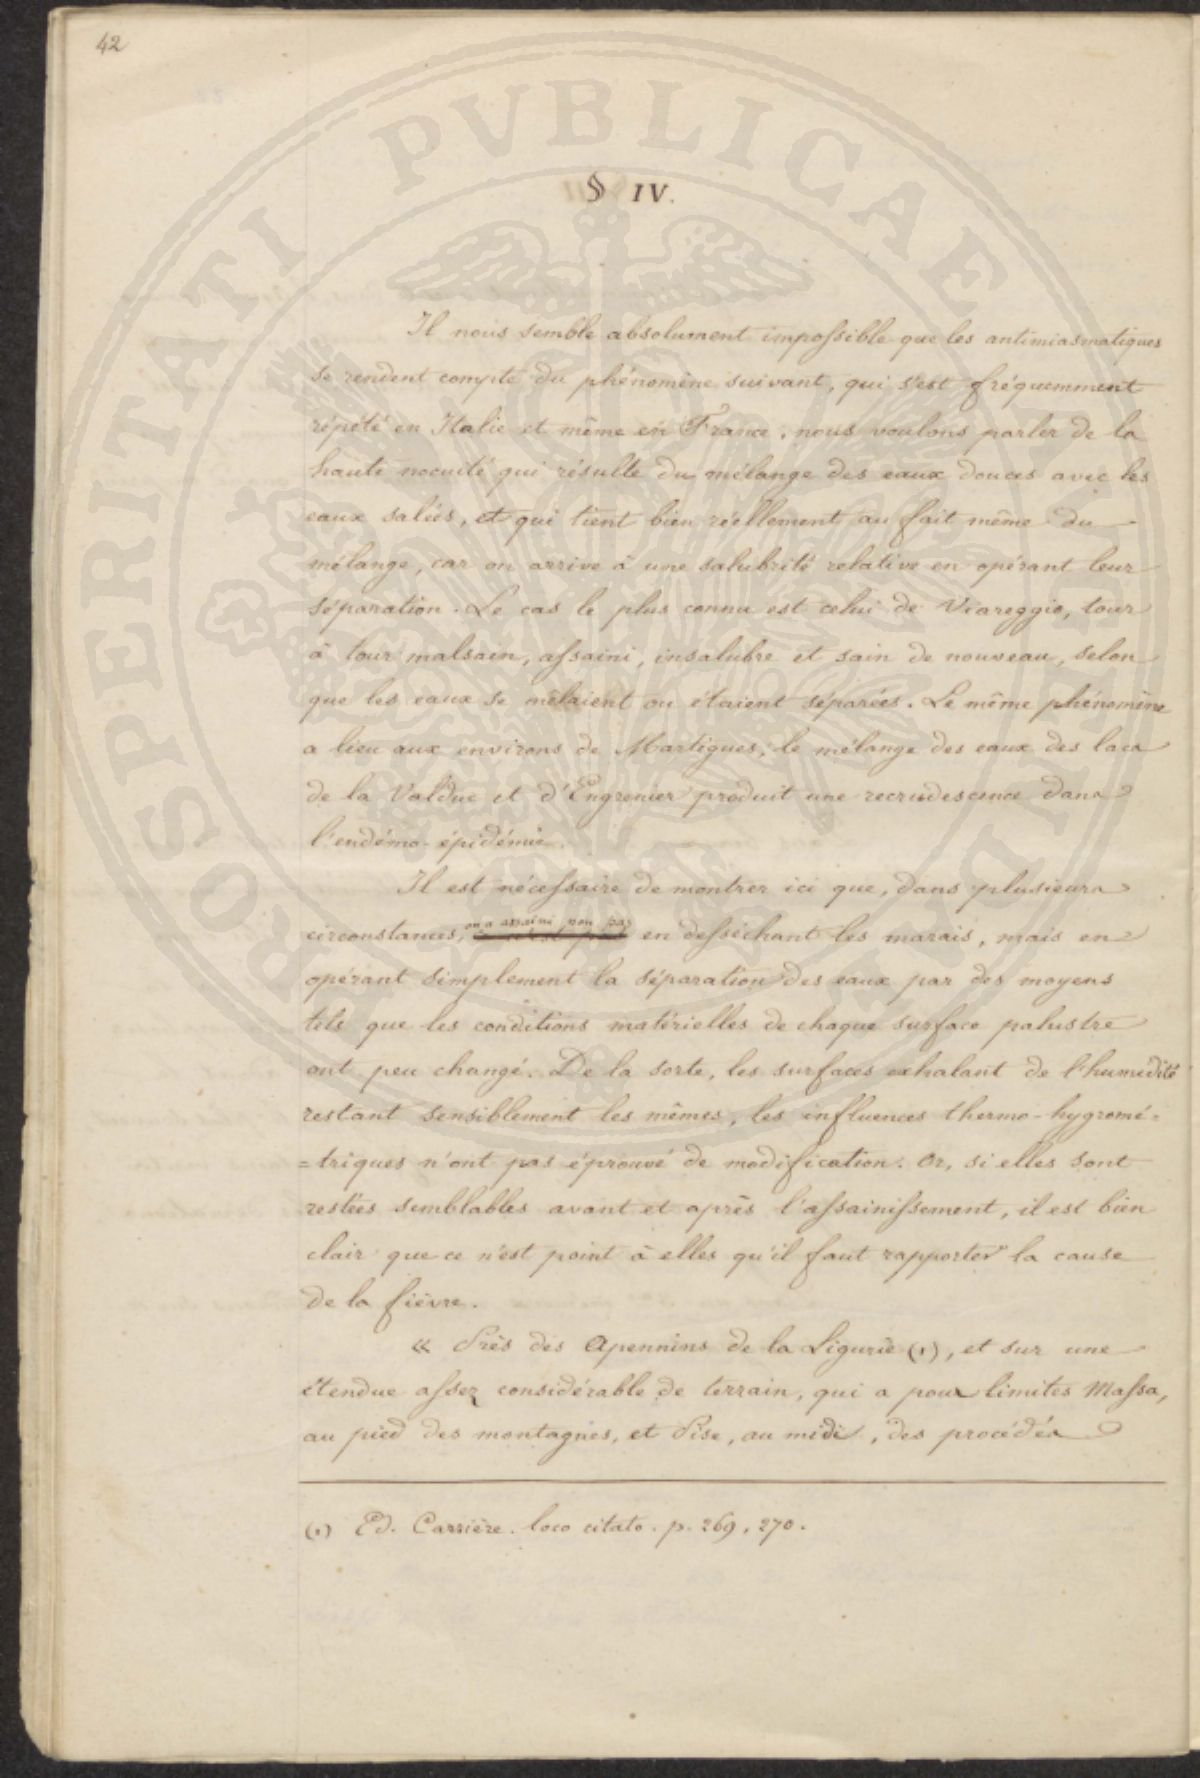 42
§ IV.
Il nous semble absolument impossible que les antimiasmatiques
se rendent compte du phénomène suivant, qui s'est fréquemment
répété en Italie et même en France ; nous voulons parler de la
haute nocuité qui résulte du mélange des eaux douces avec les
eaux salées, et qui tient bien réellement au fait même du
mélange, car on arrive à une salubrité relative en opérant leur
séparation. Le cas le plus connu est celui de Viareggio, tour
à tour malsain, assaini, insalubre et sain de nouveau, selon
que les eaux se mêlaient ou étaient séparées. Le même phénomène
a lieu aux environs de Martigues, le mélange des eaux des lacs
de la Valduc et d'Engrenier produit une recrudescence dans
l'endémo-épidémie.
Il est nécessaire de montrer ici que, dans plusieurs
circonstances, on a assaini non pas en desséchant les marais, mais en
opérant simplement la séparation des eaux par des moyens
tels que les conditions matérielles de chaque surface palustre
ont peu changé. De la sorte, les surfaces exhalant de l'humidité
restant sensiblement les mêmes, les influences thermo-hygromé=
=triques n'ont pas éprouvé de modification. Or, si elles sont
restées semblables avant et après l'assainissement, il est bien
clair que ce n'est point à elles qu'il faut rapporter la cause
de la fièvre.
« Près des Apennins de la Ligurie (1), et sur une
étendue assez considérable de terrain, qui a pour limites Massa,
au pied des montagnes, et Pise, au midi, des procédés
(1) Ed. Carrière. loco citato. p. 269, 270.
PROSPERITATI PVBLICAE